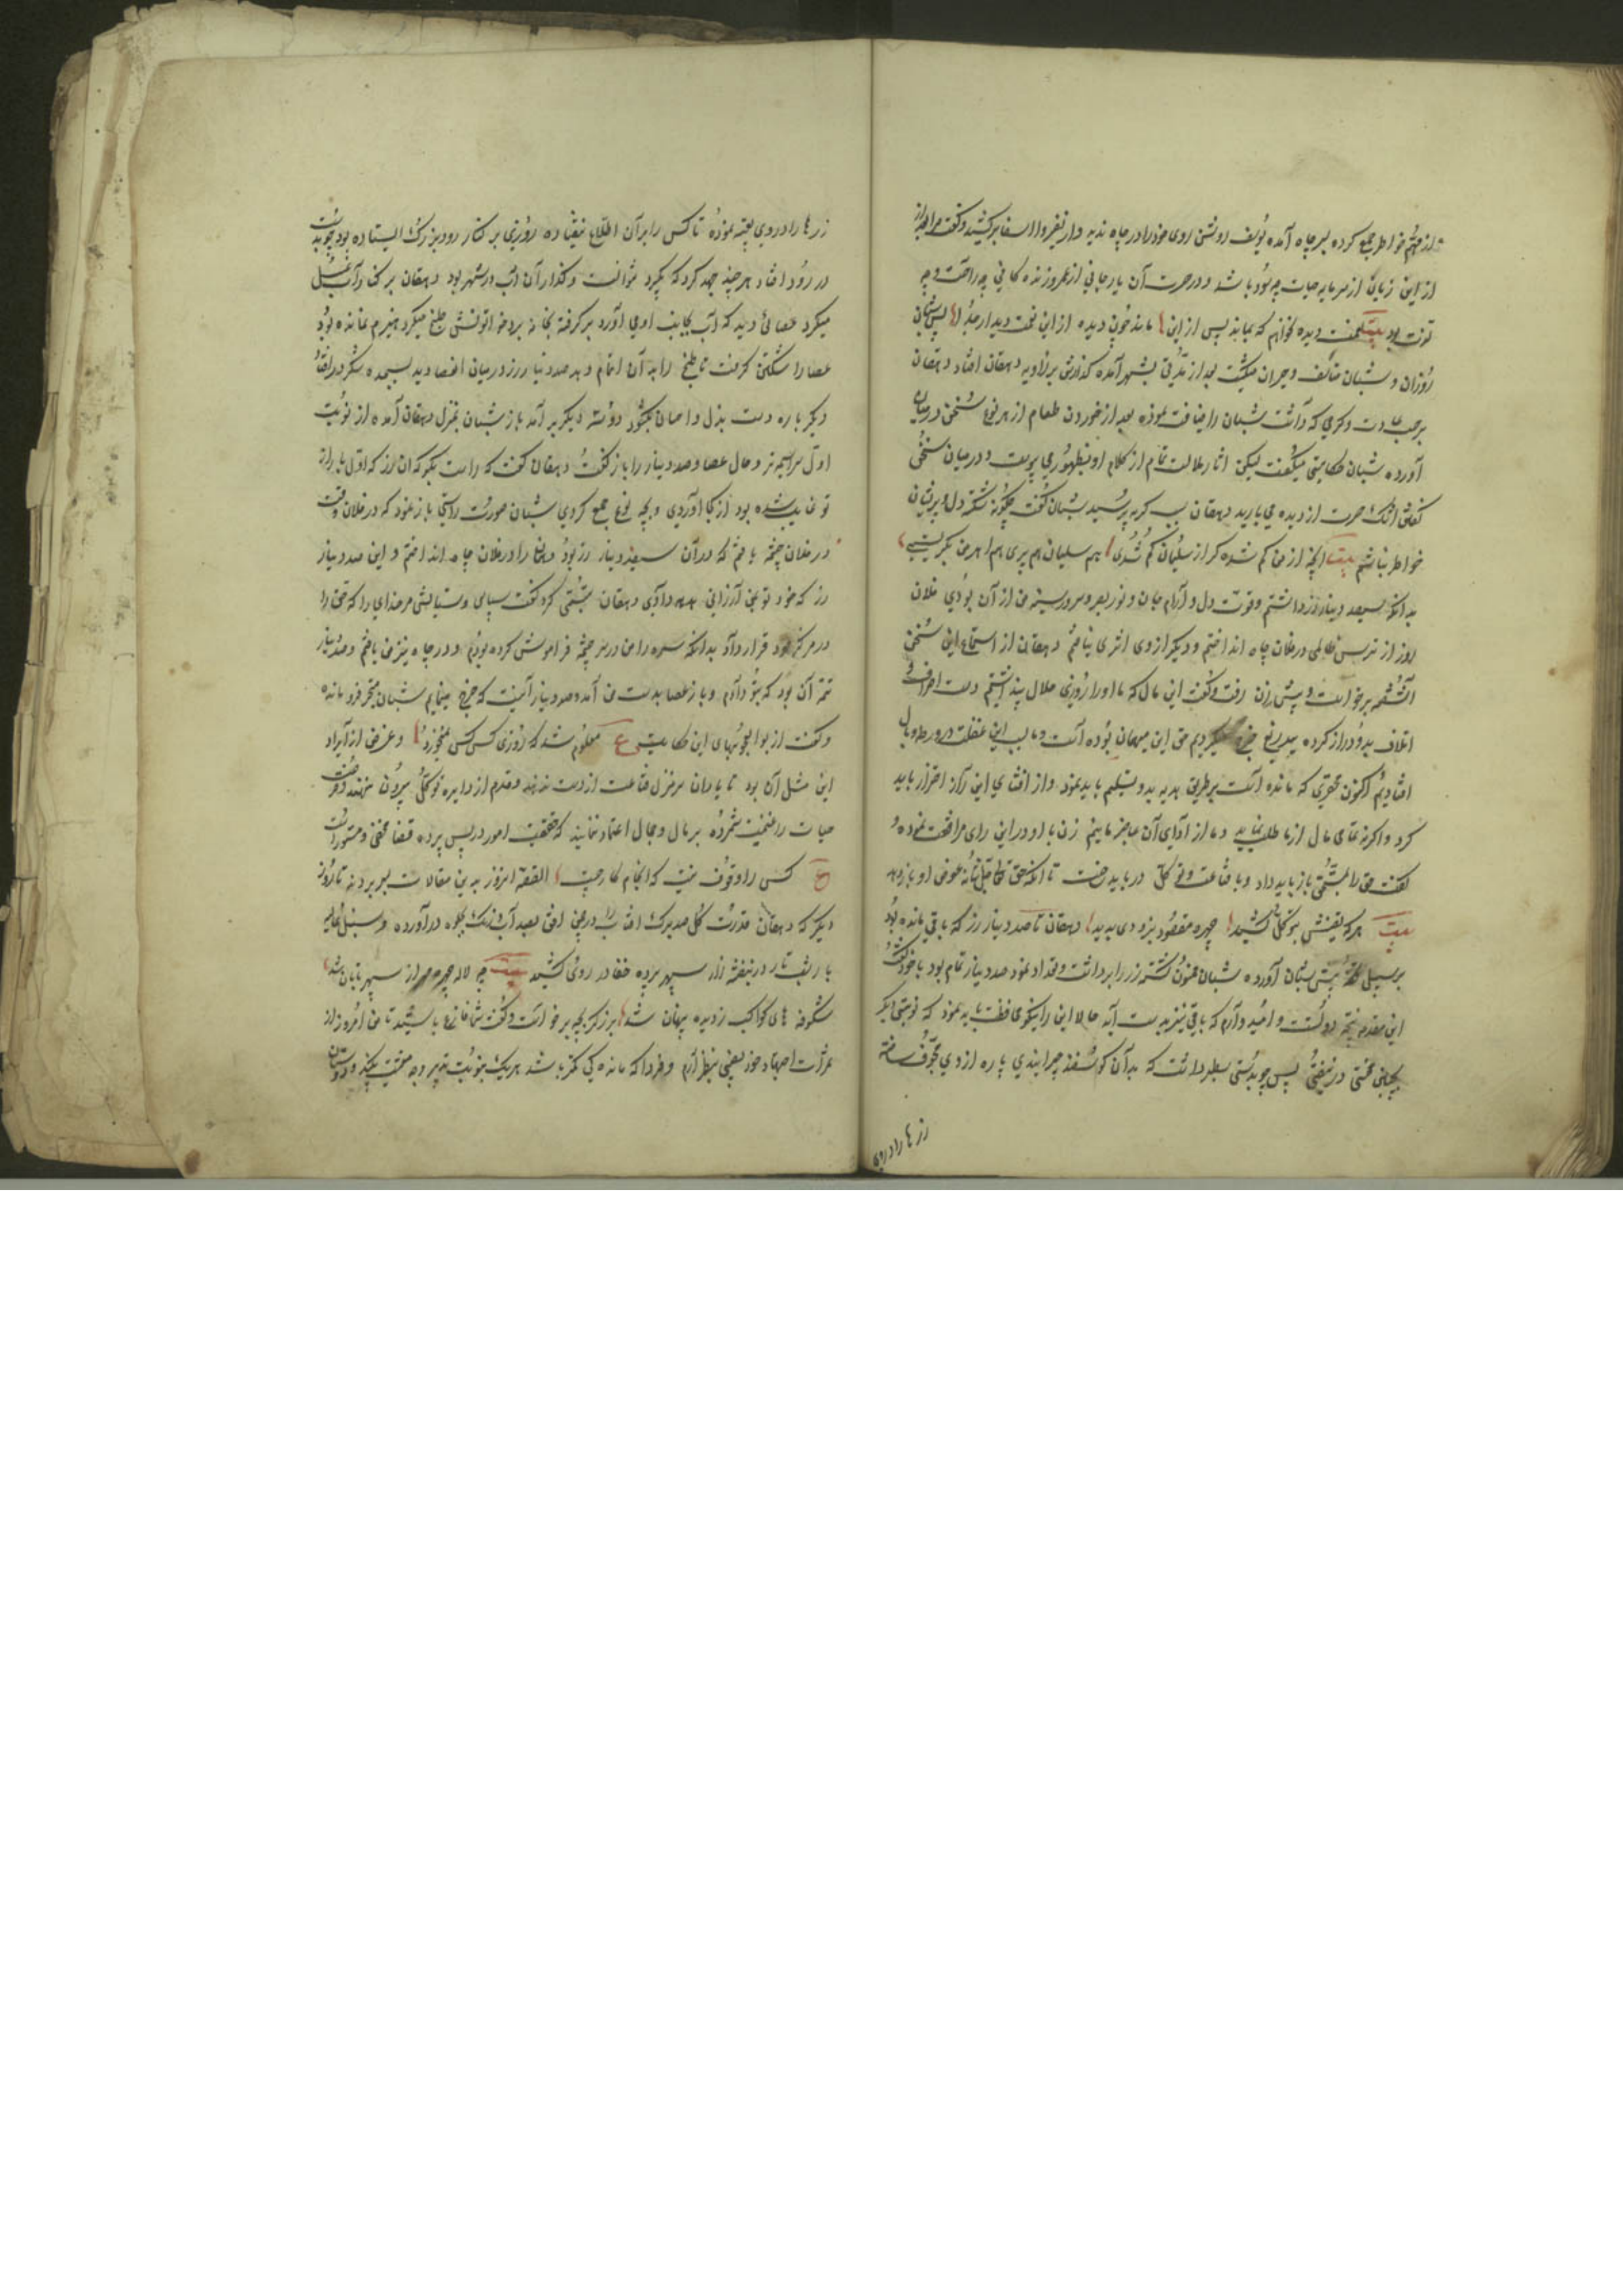 از مهم خاطر جمع کرده بسر چاه آمده یوسف روشن روی خود را در چاه ندید و از نفیر وا اسفا برکشید و گفت مرا بعد از
از این زیان از سرمایه حیات چه سود باشد و در حسرت آن یار جانی از عمر روز زنده کانی چه راحت و چه
قوت بود بیت دیده که بماند پس از این ماند خون دیده از این نعمت دیدار جدا پس شبان
روزان و شبان متأسف و حیران میگشت بعد از مدتی بشهر آمده گذارش بر زاویه دهقان افتاد دهقان
برحسب عادت و کرمی که داشت شبان را ضیافت نموده بعد از خوردن طعام از هر نوع سخن در میان
آورده شبان حکایتی میگفت لیکن اثار ملالت تمام از کلام او بظهور می پیوست و در میان سخن
گفتن اشک حسرت از دیده می بارید دهقان سبب گریه پرسید شبان گفت چگونه شکسته دل و پریشان
خواطر نباشم بیت آنچه از من گم شده گر از سلیمان گم شدی هم سلیمان هم پری هم اهرمن بگریستی
بدانکه سیصد دینار زر داشتم و قوت دل و آرام جان و نور بصر و سرور سینه من از آن بودی فلان
روز از ترس ظالمی در فلان چاه انداختم و دیگر از وی اثری نیافتم دهقان از استماع این سخن
آشفته برخواست و پیش زن رفت و گفت این مال که ما او را روزی حلال پنداشتیم دست اسراف
اتلاف بدو دراز کرده بیدریغ خرج میکردیم حق این میهمان بوده است و ما بسبب این غفلت در ورطه وبال
افتادیم اکنون محقری که مانده است بر طریق هدیه بدو تسلیم باید نمود و از افشای این راز احتراز باید
کرد و اگرنه تمامی مال از ما طلب نماید و ما از ادای آن عاجز مانیم زن با او در این رای موافقت نموده و
گفت حق را بمستحق باز باید داد و با قناعت و توکل در باید ساخت تا آنکه حق تعالی عوض او باز دهد
بیت هرکه نقش توکل کشید چهره مقصود بزودی بدید دهقان تا صد دینار زر که باقی مانده بود
بر سبیل تحفه پیش شبان آورده شبان ممنون گشته زر را برداشت و تعداد نمود صد دینار تمام بود با خود گفت
این مقدمه نتیجه دولتست و امید وارم که باقی نیز بدست آید حالا این را نیکو محافظت باید نمود که نوبتی دیگر
بچنین محنتی در نیفتم پس چوبدستی سطبر داشت که بدان گوسفند چرانیدی پاره از وی مجوف ساخته
زرها را در وی
زرها را در وی تعبیه نموده تا کس را بر آن اطلاع نیفتاده روزی بر کنار رود بزرگ ایستاده بود چوبدست
در رود افتاد هر چند جهد کرد که بگیرد نتوانست و گذار آن آب در شهر بود دهقان بر کنار آب غسل
میکرد عصائی دید که آب بجانب او می آورد برگرفته بخانه برد خواتونش طبخ میکرد هیزم نمانده بود
عصا را شکستن گرفت تا طبخ را بدان اتمام دهد صد دینار زر در میان عصا دید سجده شکر
دیگر باره دست بذل و احسان بگشود دو سه دیگر بر آمد باز شبان بمنزل دهقان آمده از نوبت
اول سراسیمه تر و حال عصا و صد دینار را باز گفت دهقان گفت که راست بگو که آن زر که اول بار از
تو غایب شده بود از کجا آوردی و بچه نوع جمع کردی شبان صورت راستی باز نمود که در فلان وقت
در فلان چشمه یافتم که در آن سیصد دینار زر بود و آنها را در فلان چاه انداختم و این صد دینار
زر که خود تو بمن ارزانی داری دهقان تبسمی کرد گفت سپاس و ستایش مر خدای را که حق را
در مرکز خود قرار داد بدانکه سره را من در سر چشمه فراموش کرده بودم و در چاه نیز من یافتم و صد دینار
تتمه آن بود که بتو دادم و باز عصا بدست من آمد و صد دینار آنست که خرج مینمایم شبان متحیر فرو مانده
و گفت از بوالعجبیهای این حکایت ع معلوم شد که روزی کس کس نمیخورد و غرض از ایراد
این مثل آن بود تا یاران سر منزل قناعت از دست ندهند و قدم از دایره توکل بیرون ننهند و فرصت
حیات را غنیمت شمرده بر مال و مجال اعتماد ننمایند که حقیقت امور در پس پرده قضا مخفی و مستور است
ع کسی را وقوف نیست که انجام کار چیست القصه امروز بدین مقالات بسر بردند تا روز
دیگر که دهقان قدرت گل صد برگ آفتاب را در چمن افق بصد آب و رنگ بجلوه در آورده و سنبل غالیه
بار شب تار در بنفشه زار سپهر پرده خفا در روی کشید بیت چه لاله چهره مهر از سپهر تابان شد
شکوفه های کواکب ز دیده پنهان شد برزگر بچه برخواست و گفت شما فارغ باشید تا من امروز از
ثمرات اجتهاد خود نصیبی بنظر آرم و فردا که ماندگی کمتر باشد هر یک بنوبت تدبیر وجه معیشت بکند دوستان